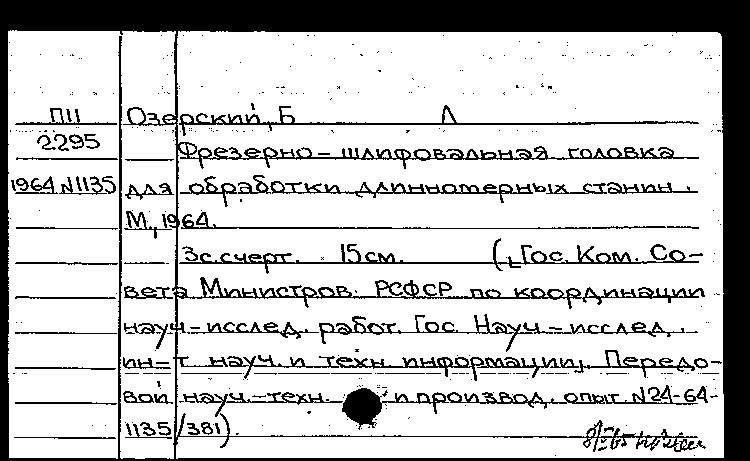 П11 Озерский, Б Л
2295
Фрезерно-шлифовальная головка
1964 N1135 для обработки длинномерных станин.
М., 1964.
3с. с черт. 15 см. (Гос. Ком. Со-
вета Министров РСФСР по координации
науч-исслед. работ. Гос. Науч-исслед.
ин-т науч. и техн информации. Передо-
вой науч.-техн. и производ. опыт. N24-64-
1135/381).